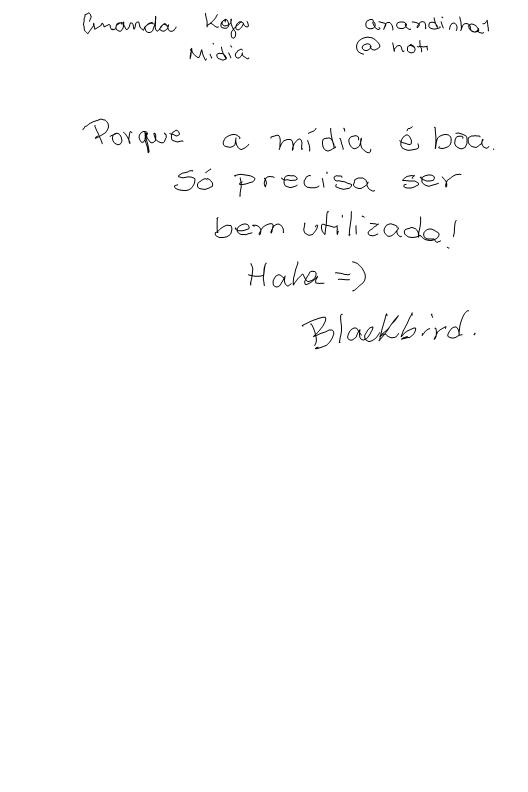 Amanda Koga anandinha1
Mídia @ hot
Porque a mídia é boa.
Só precisa ser
bem utilizada!
Haha =)
Blackbird.